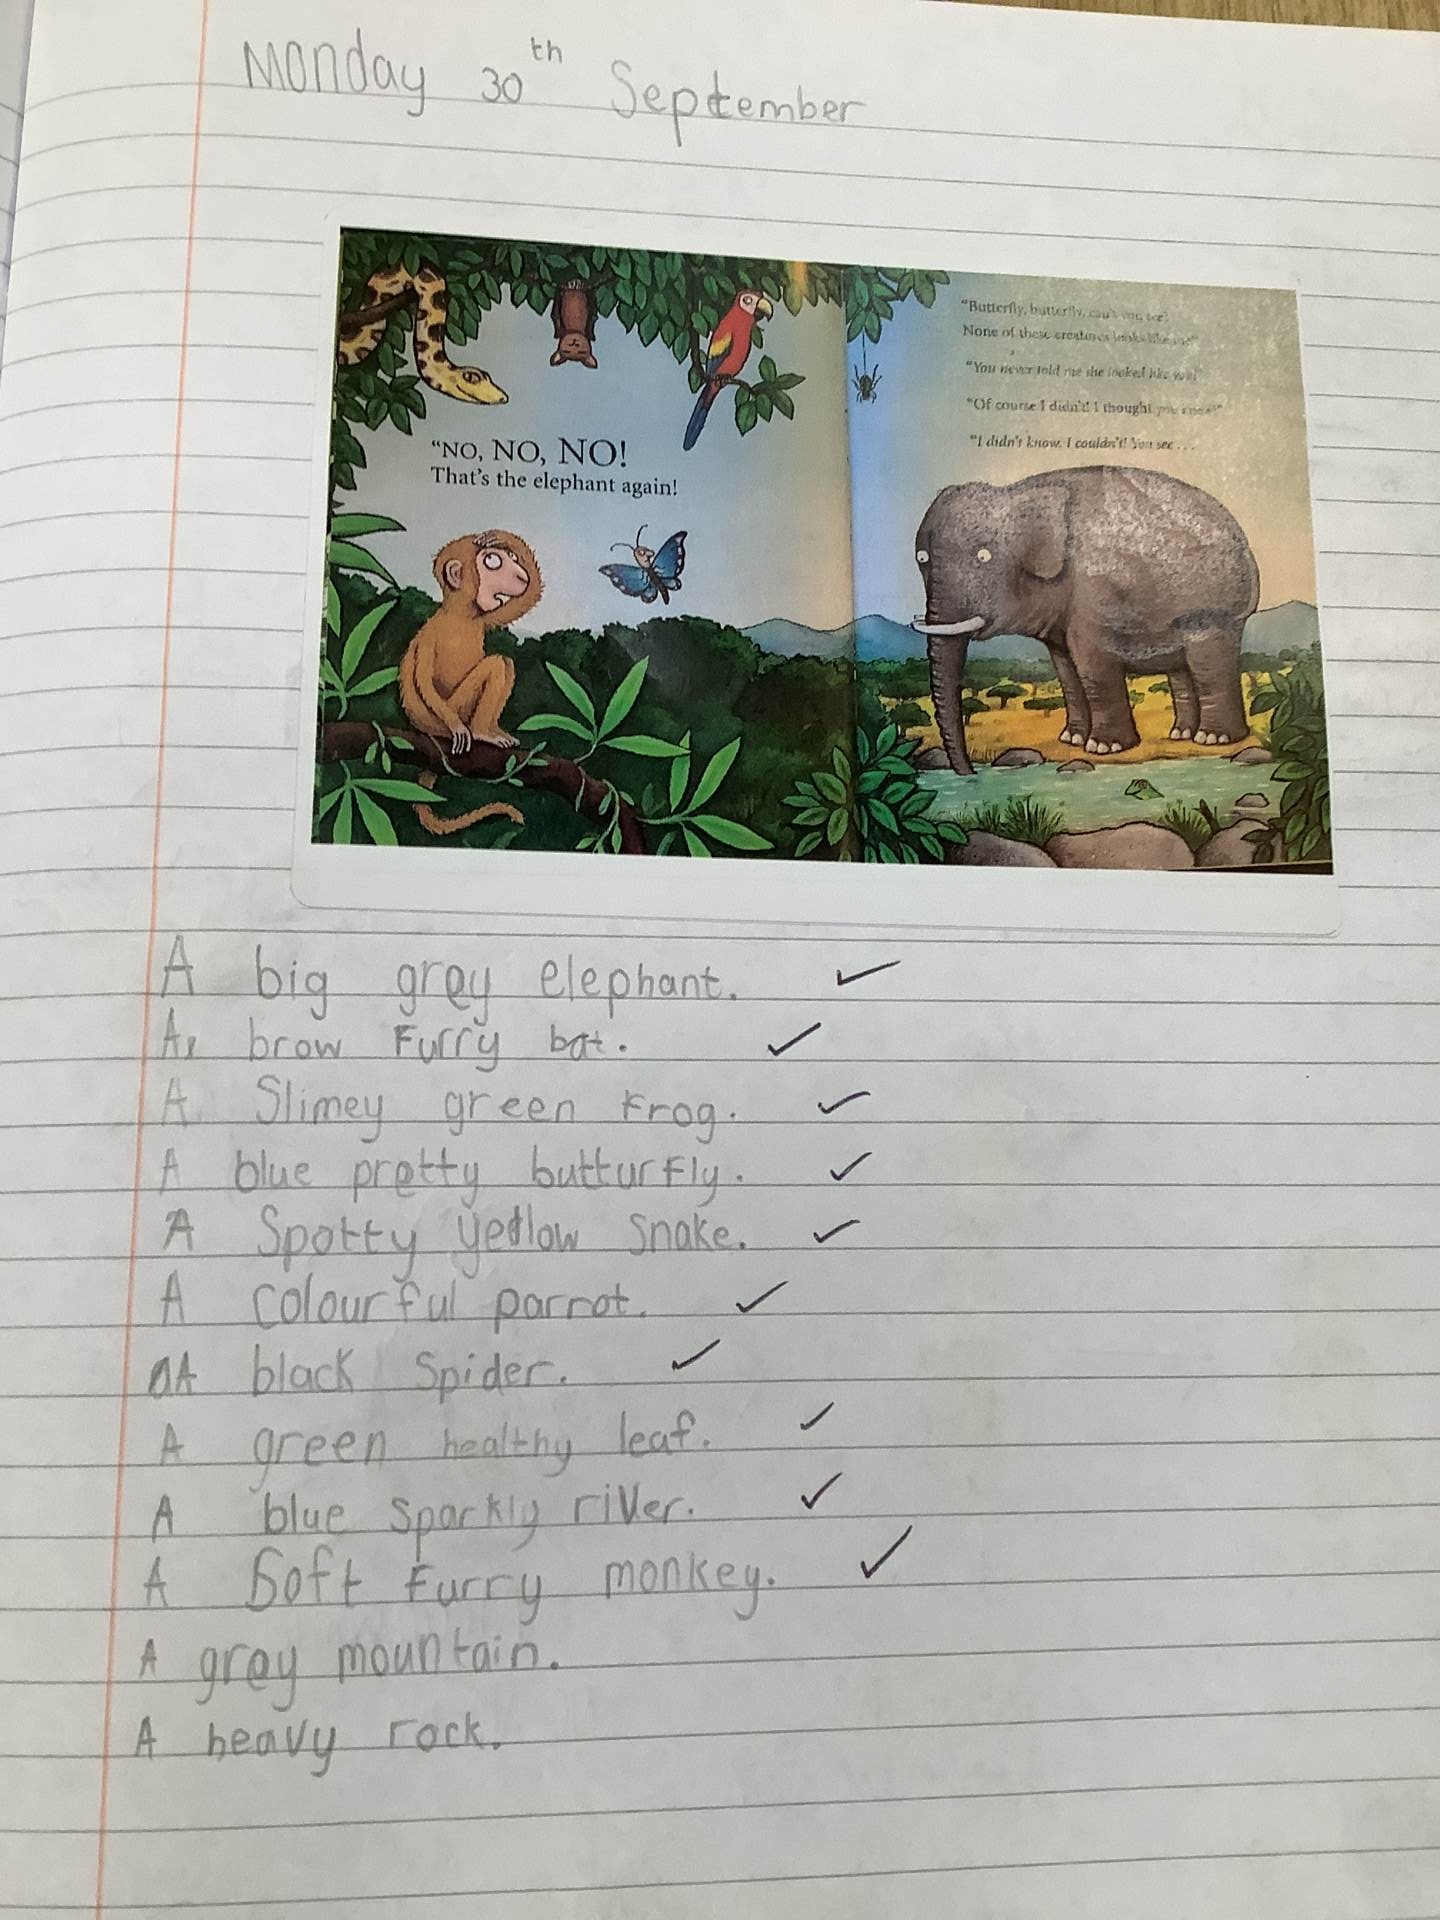 Monday 30th September
"NO, NO, NO!
That's the elephant again!
"Butterfly, butterfly, can't you see?
None of these creatures looks like me!"
"You never told me she looked like you!"
"Of course I didn't! I thought you knew!"
"I didn't know. I couldn't! You see . . .
A big grey elephant.
A brow Furry bat.
A Slimey green Frog.
A blue pretty butturFly.
A Spotty yellow snake.
A colourful parrot.
A black Spider.
A green healthy leaf.
A blue sparkly river.
A Soft Furry monkey.
A grey mountain.
A heavy rock.